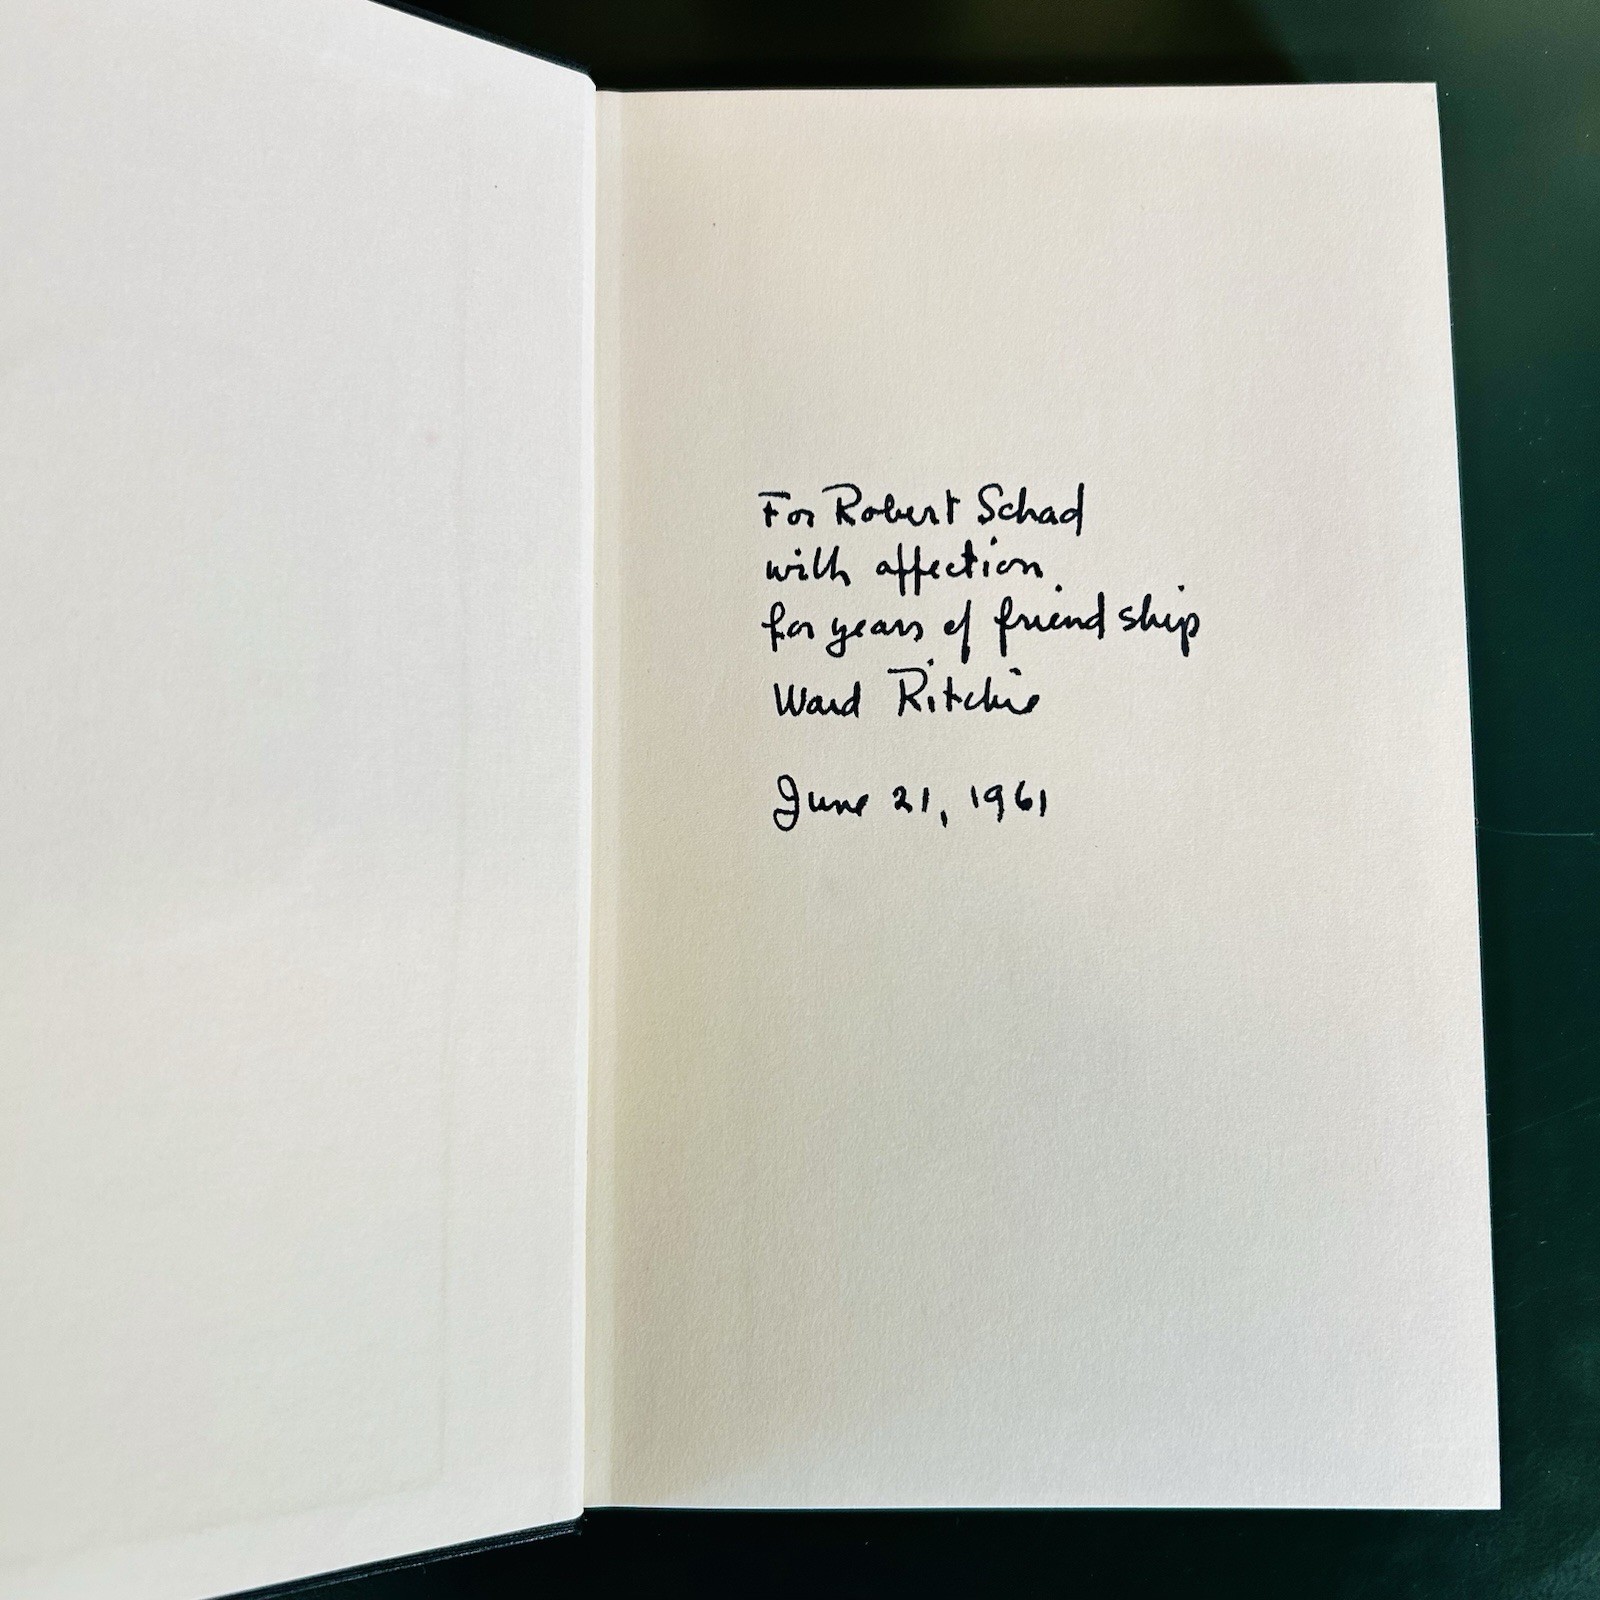 For Robert Schad
with affection
for years of friendship
Ward Ritchie
June 21, 1961